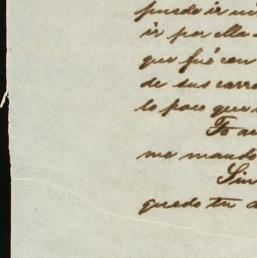 puede ir
ir por ella
que fué con
de sus
lo poco que
To
me mando
Sin
quedo tu